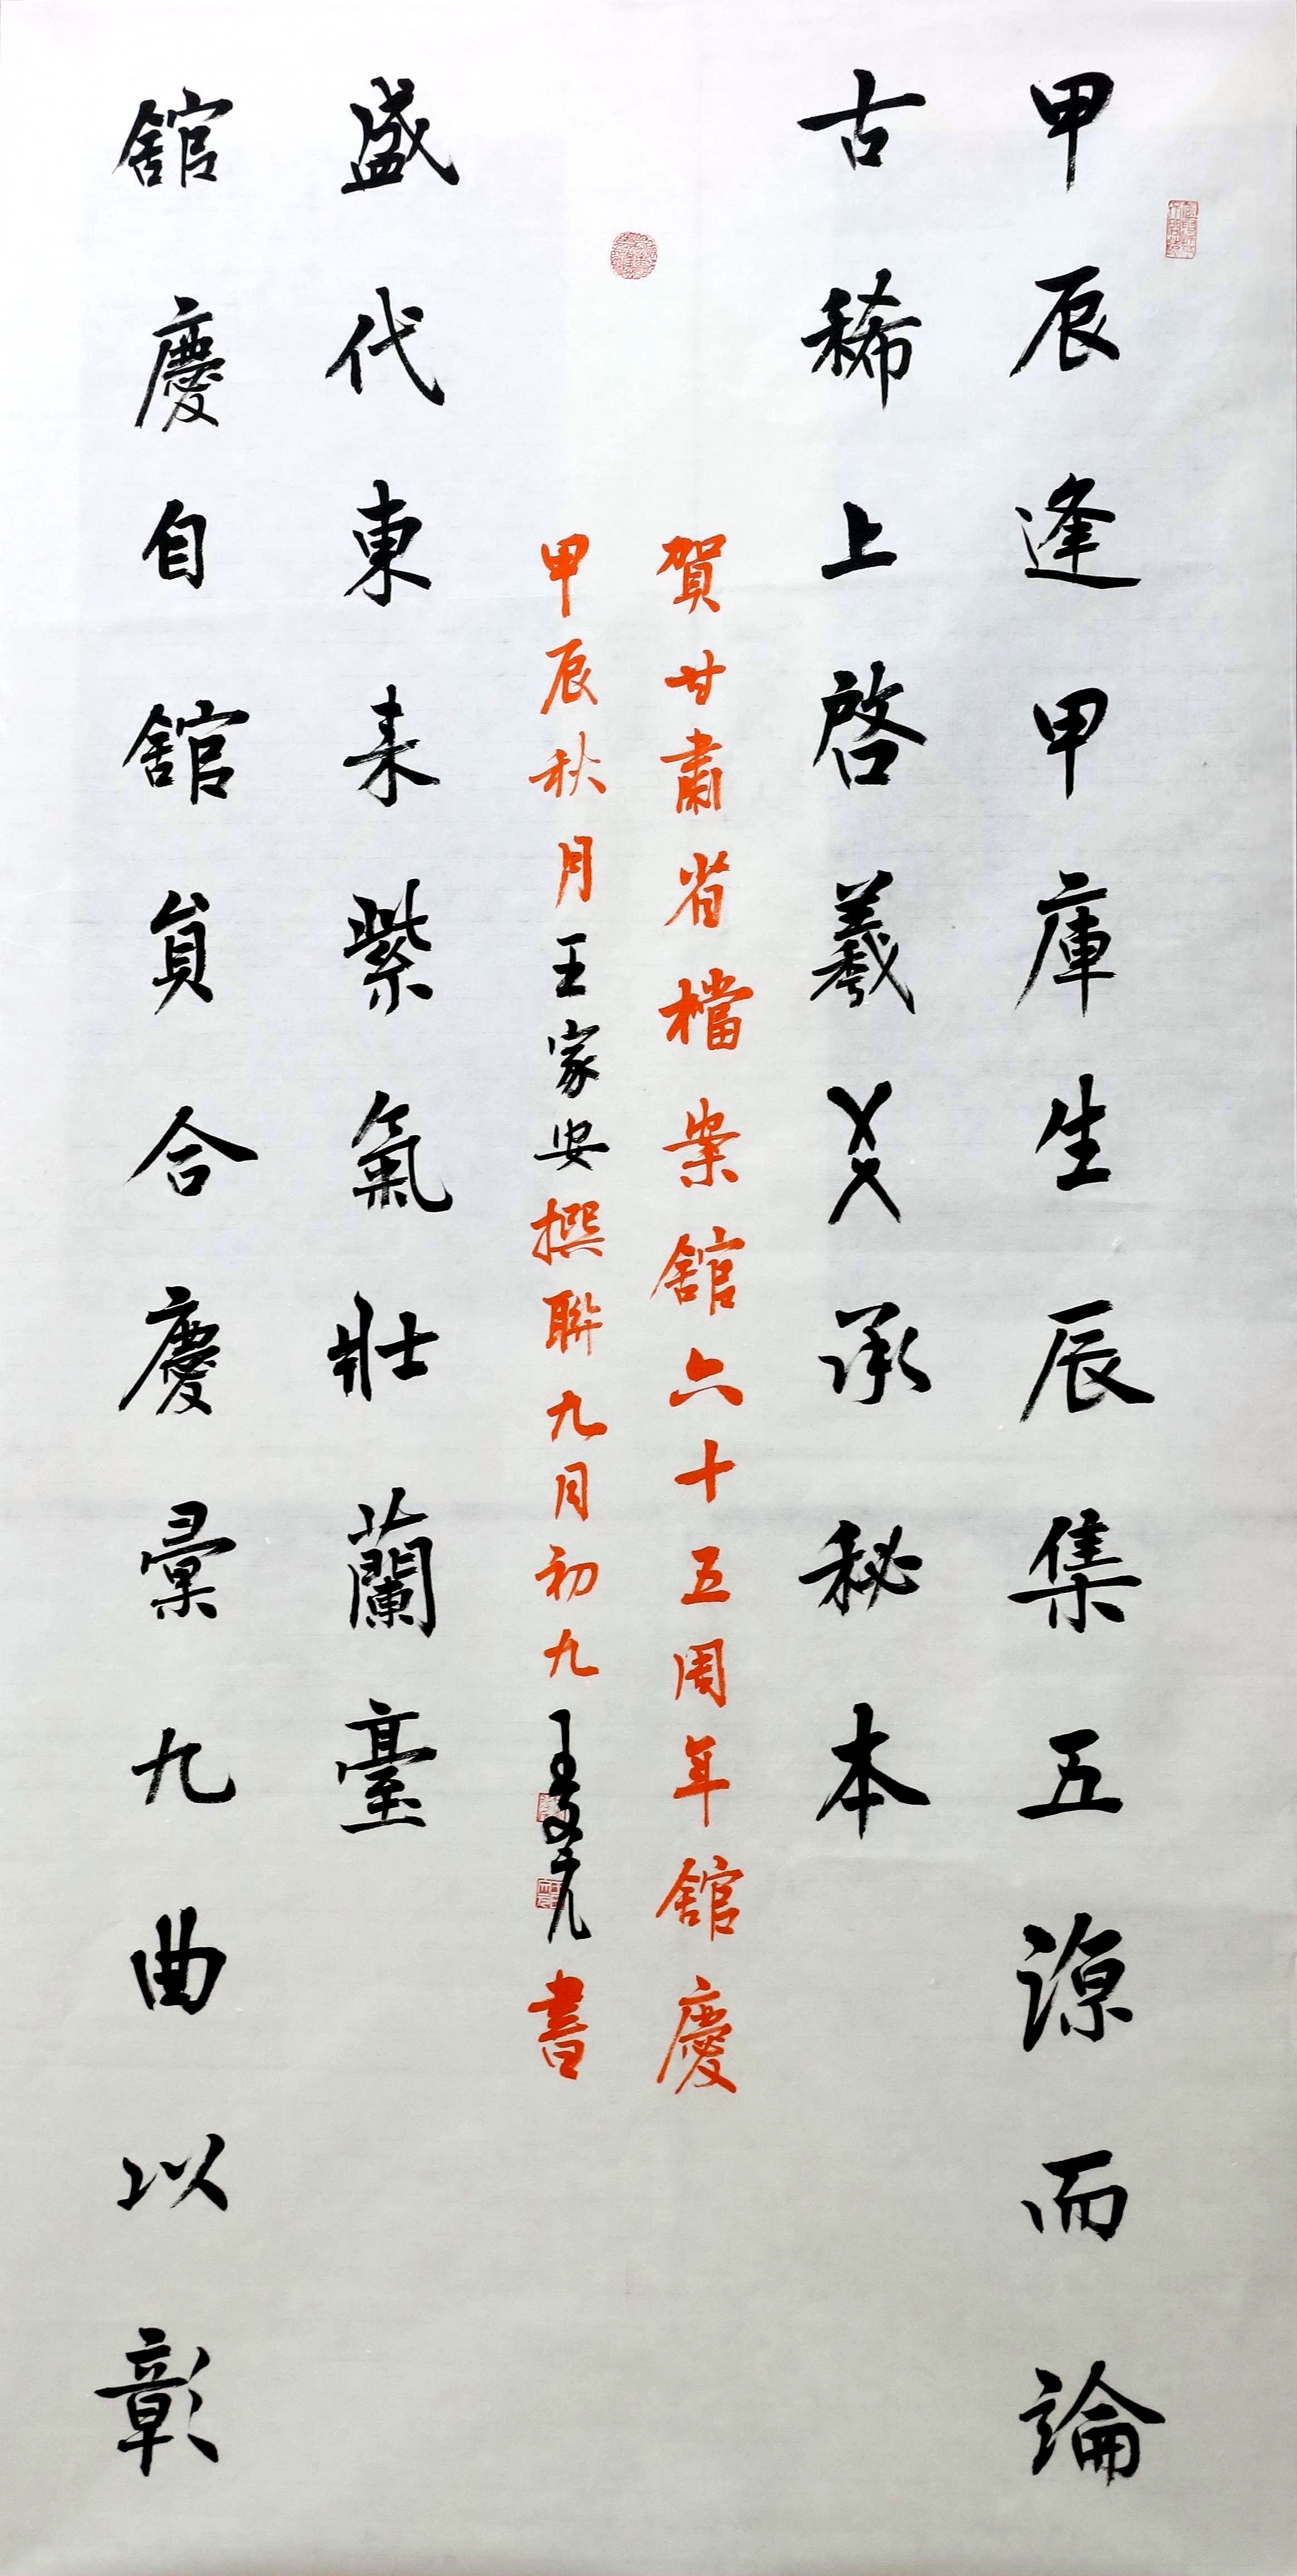 甲辰逢甲庫生辰集五源而論
古稀上啓羲爻承秘本
舘慶自舘員合慶彙九曲以彰
盛代東来紫氣壯蘭臺
賀甘肅省檔案舘六十五周年舘慶
甲辰秋月王家安撰聯九月初九王書